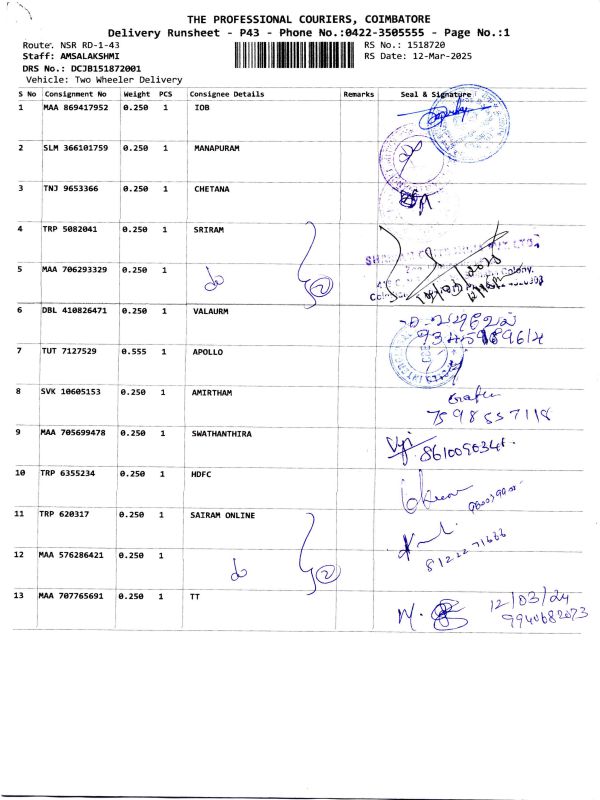 THE PROFESSIONAL COURIERS, COIMBATORE
Delivery Runsheet - P43 - Phone No.:0422-3505555 - Page No.:1
Route. NSR RD-1-43 RS No.: 1518720
Staff: AMSALAKSHMI RS Date: 12-Mar-2025
DRS No.: DCJB151872001
Vehicle: Two Wheeler Delivery
S No Consignment No Weight PCS Consignee Details Remarks Seal & Signature
1 MAA 869417952 0.250 1 IOB
2 SLM 366101759 0.250 1 MANAPURAM
3 TNJ 9653366 0.250 1 CHETANA
4 TRP 5082041 0.250 1 SRIRAM
5 MAA 706293329 0.250 1 do 2
Colony.
6 DBL 410826471 0.250 1 VALAURM
7 TUT 7127529 0.555 1 APOLLO
8 SVK 10605153 0.250 1 AMIRTHAM
7598557118
9 MAA 705699478 0.250 1 SWATHANTHIRA
10 TRP 6355234 0.250 1 HDFC
11 TRP 620317 0.250 1 SAIRAM ONLINE
8122271666
12 MAA 576286421 0.250 1 do 2
13 MAA 707765691 0.250 1 TT M. 12/03/24
9940682073